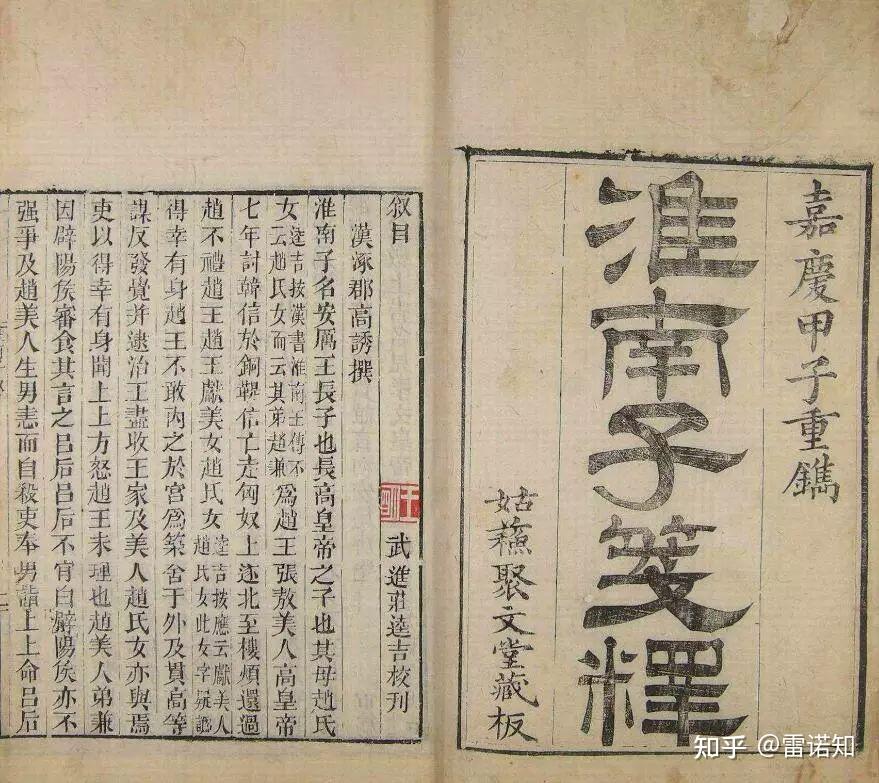 嘉慶甲子重鐫
淮南子箋釋
姑蘇聚文堂藏板
叙目
漢涿郡高誘撰
武進莊逵吉校刊
淮南子名安厲王長子也長高皇帝之子也其母趙氏
女逵吉按漢書淮南王傳不云趙氏女而云其弟趙兼為趙王張敖美人高皇帝
七年討韓信於銅鞮信亡走匈奴上遂北至樓煩還過
趙不禮趙王趙王獻美女趙氏女逵吉按應云獻美人趙氏女此女字疑譌
得幸有身趙王不敢內之於宮為築舍于外及貫高等
謀反發覺并逮治王盡收王家及美人趙氏女亦與焉
吏以得幸有身聞上上方怒趙王未理也趙美人弟兼
因辟陽侯審食其言之呂后呂后不肯白辟陽侯亦不
强爭及趙美人生男恚而自殺吏奉男詣上上命呂后
知乎 @雷诺知